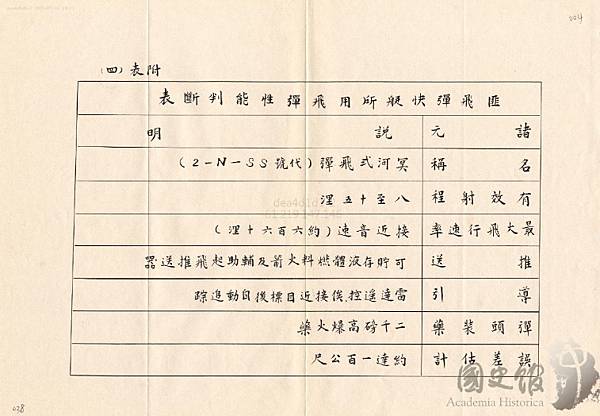 004
附表(四)
匪飛彈快艇所用飛彈性能判斷表
諸元 說明
名稱 冥河式飛彈(代號SS-N-2)
有效射程 八至十五浬
最大飛行速率 接近音速(約六百六十浬)
推送 可貯存液體燃料火箭及輔助起飛推送器
導引 雷達遙控,俟接近目標後自動追踪
彈頭裝藥 二千磅高爆火藥
誤差估計 約達一百公尺
國史館
Academia Historica
028